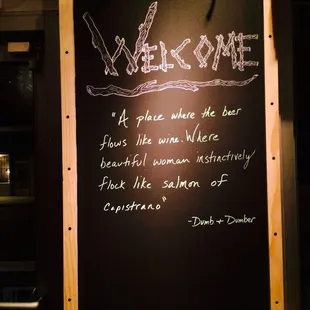 WELCOME
"A place where the beer
flows like wine. Where
beautiful woman instinctively
flock like salmon of
Capistrano"
-Dumb + Dumber